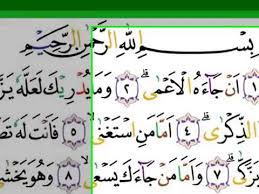 بِسْمِ اللّٰهِ الرَّحْمٰنِ الرَّحِيْمِ
١ اَنْ جَآءَهُ الْاَعْمٰىۗ ٢ وَمَا يُدْرِيْكَ لَعَلَّهٗ يَزَّ
الذِّكْرٰىۗ ٤ اَمَّا مَنِ اسْتَغْنٰىۙ ٥ فَاَنْتَ لَهٗ تَصَ
زَّكّٰىۗ ٧ وَاَمَّا مَنْ جَآءَكَ يَسْعٰىۙ ٨ وَهُوَ يَخْشٰى